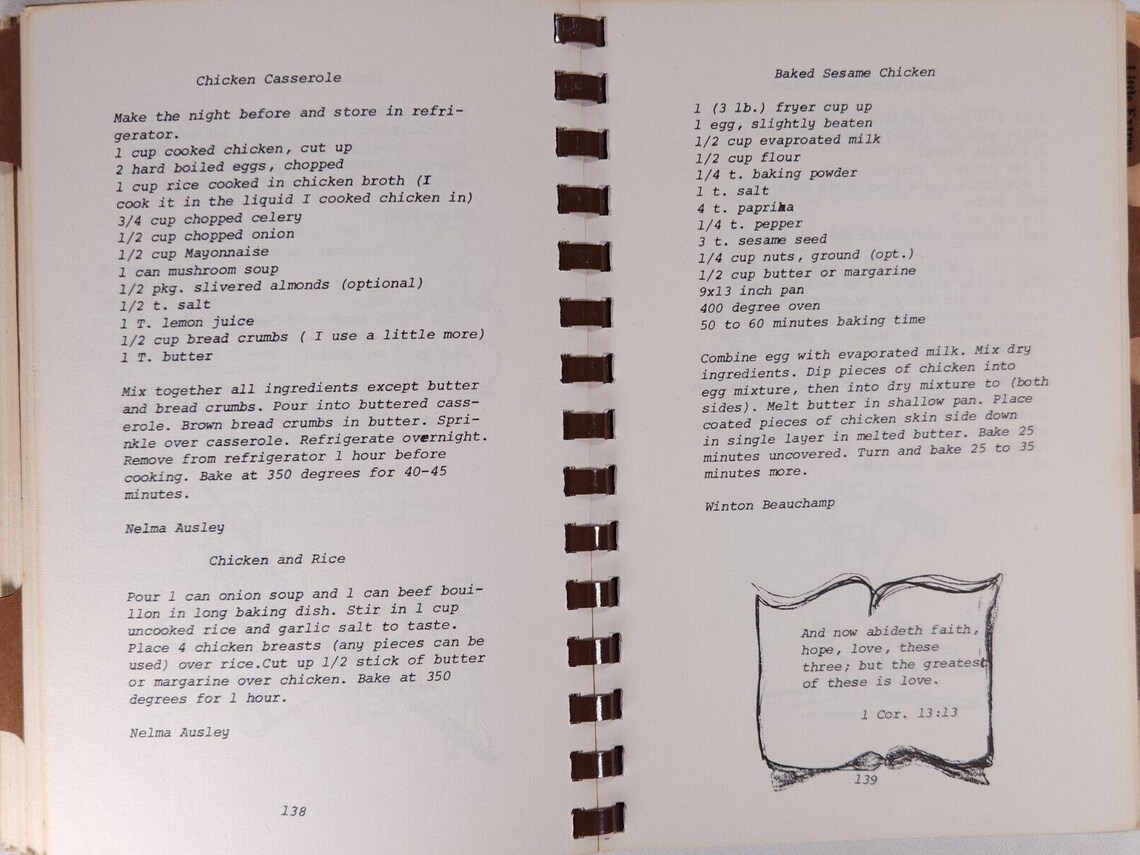 Chicken Casserole
Make the night before and store in refri-
gerator.
1 cup cooked chicken, cut up
2 hard boiled eggs, chopped
1 cup rice cooked in chicken broth (I
cook it in the liquid I cooked chicken in)
3/4 cup chopped celery
1/2 cup chopped onion
1/2 cup Mayonnaise
1 can mushroom soup
1/2 pkg. slivered almonds (optional)
1/2 t. salt
1 T. lemon juice
1/2 cup bread crumbs ( I use a little more)
1 T. butter
Mix together all ingredients except butter
and bread crumbs. Pour into buttered cass-
erole. Brown bread crumbs in butter. Spri-
nkle over casserole. Refrigerate overnight.
Remove from refrigerator 1 hour before
cooking. Bake at 350 degrees for 40-45
minutes.
Nelma Ausley
Chicken and Rice
Pour 1 can onion soup and 1 can beef boui-
llon in long baking dish. Stir in 1 cup
uncooked rice and garlic salt to taste.
Place 4 chicken breasts (any pieces can be
used) over rice.Cut up 1/2 stick of butter
or margarine over chicken. Bake at 350
degrees for 1 hour.
Nelma Ausley
138
Baked Sesame Chicken
1 (3 lb.) fryer cup up
1 egg, slightly beaten
1/2 cup evaproated milk
1/2 cup flour
1/4 t. baking powder
1 t. salt
4 t. paprika
1/4 t. pepper
3 t. sesame seed
1/4 cup nuts, ground (opt.)
1/2 cup butter or margarine
9x13 inch pan
400 degree oven
50 to 60 minutes baking time
Combine egg with evaporated milk. Mix dry
ingredients. Dip pieces of chicken into
egg mixture, then into dry mixture to (both
sides). Melt butter in shallow pan. Place
coated pieces of chicken skin side down
in single layer in melted butter. Bake 25
minutes uncovered. Turn and bake 25 to 35
minutes more.
Winton Beauchamp
And now abideth faith,
hope, love, these
three; but the greatest
of these is love.
1 Cor. 13:13
139